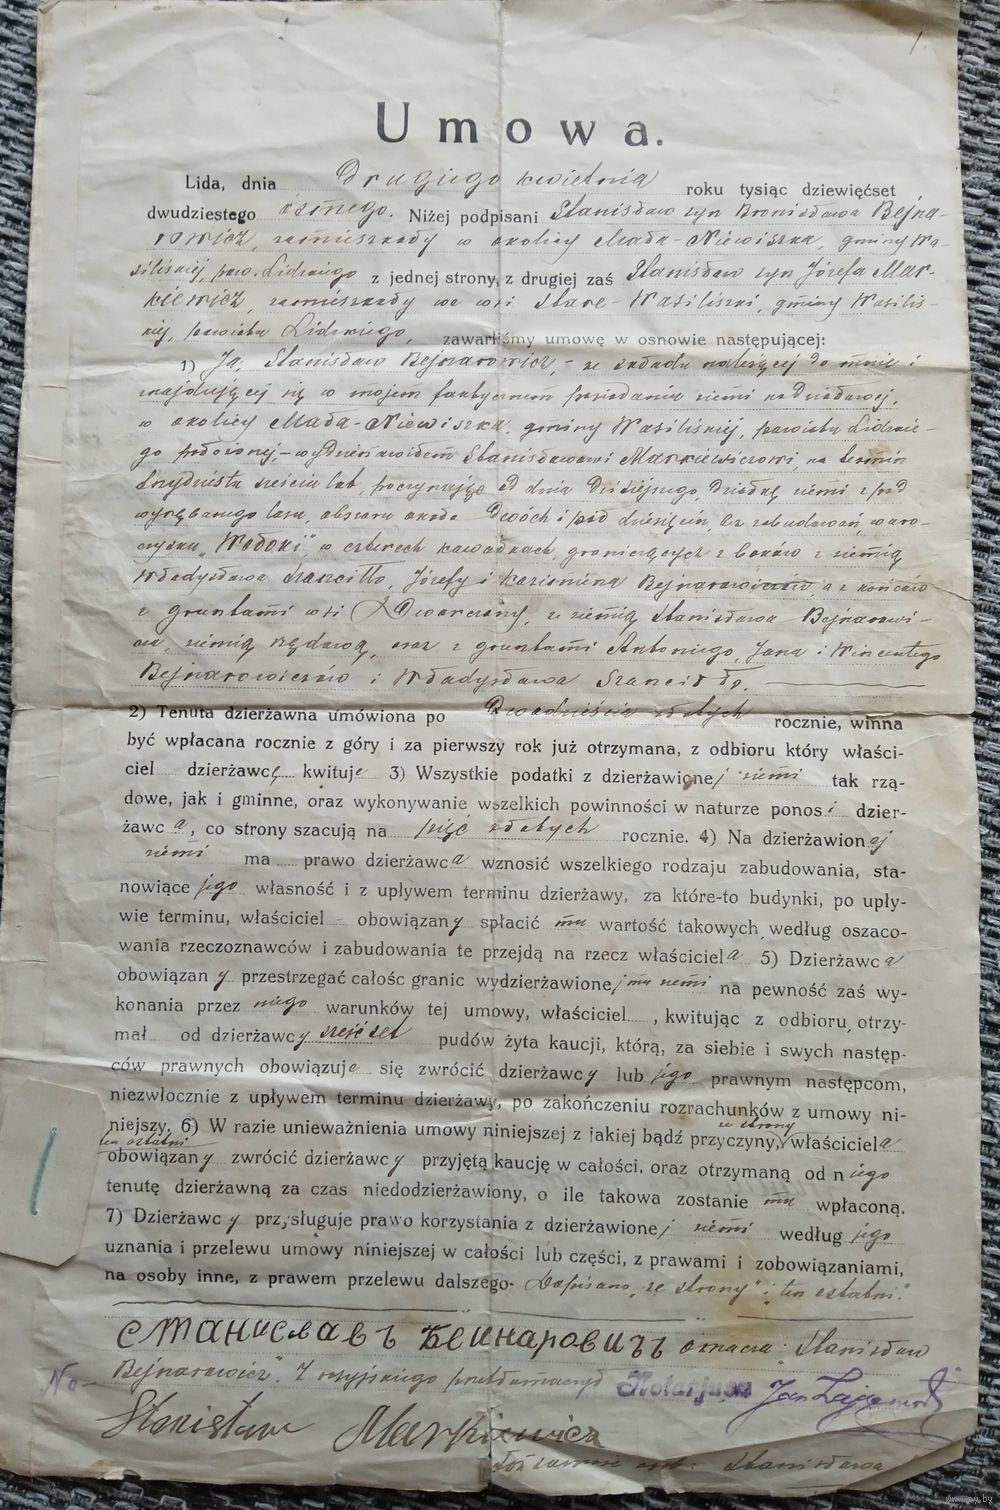 1
Umowa.
Lida, dnia Drugiego kwietnia roku tysiąc dziewięćset
dwudziestego ósmego. Niżej podpisani Stanisław syn Bronisława Bejna-
rowicz, zamieszkały w okolicy Mała-Niewiszka, gminy Wa-
siliskiej, pow. Lidzkiego z jednej strony, z drugiej zaś Stanisław syn Józefa Mar-
kiewicz, zamieszkały we wsi Stare-Wasiliszki, gminy Wasilis-
kiej, powiatu Lidzkiego, zawarliśmy umowę w osnowie następującej:
1) Ja, Stanisław Bejnarowicz, - ze składu należącej do mnie i
znajdującej się w mojem faktycznem posiadaniu ziemi nadziałowej,
w okolicy Mała-Niewiszka, gminy Wasiliskiej, powiatu Lidzkie-
go położonej, - wydzierżawiłem Stanisławowi Markiewiczowi, na termin
trzydziestu sześciu lat, poczynając od dnia dzisiejszego, działkę ziemi z pod
wyrębanego lasu, obszaru około dwóch i pół dziesięcin, bez zabudowań, w uro-
czysku "Wodoki", w czterech kawałkach, graniczących z boków z ziemią
Władysława Szancillo, Józefy i Kazimierza Bejnarowiczów a z końców
z gruntami wsi Dworczany, ze ziemią Stanisława Bejnarowi-
cza, ziemią rządową, oraz z gruntami Antoniego, Jana i Wincentego
Bejnarowiczów i Władysława
2) Tenuta dzierżawna umówiona po Dwadzieścia złotych rocznie, winna
być wpłacana rocznie z góry i za pierwszy rok już otrzymana, z odbioru który właści-
ciel dzierżawcę kwituje 3) Wszystkie podatki z dzierżawionej ziemi tak rzą-
dowe, jak i gminne, oraz wykonywanie wszelkich powinności w naturze ponosi dzier-
żawca, co strony szacują na pięć złotych rocznie. 4) Na dzierżawionej
ziemi ma prawo dzierżawca wznosić wszelkiego rodzaju zabudowania, sta-
nowiące jego własność i z upływem terminu dzierżawy, za które-to budynki, po upły-
wie terminu, właściciel - obowiązany spłacić mu wartość takowych według oszaco-
wania rzeczoznawców i zabudowania te przejdą na rzecz właściciela 5) Dzierżawca
obowiązany przestrzegać całośc granic wydzierżawionej mu ziemi na pewność zaś wy-
konania przez niego warunków tej umowy, właściciel , kwitując z odbioru, otrzy-
mał od dzierżawcy sześćset pudów żyta kaucji, którą, za siebie i swych następ-
ców prawnych obowiązuje się zwrócić dzierżawcy lub jego prawnym następcom,
niezwłocznie z upływem terminu dzierżawy, po zakończeniu rozrachunków z umowy ni-
niejszy. 6) W razie unieważnienia umowy niniejszej z jakiej bądź przyczyny, ze strony właściciela
ten ostatni obowiązany zwrócić dzierżawcy przyjętą kaucję w całości, oraz otrzymaną od niego
tenutę dzierżawną za czas niedodzierżawiony, o ile takowa zostanie mu wpłaconą.
7) Dzierżawcy przysługuje prawo korzystania z dzierżawionej ziemi według jego
uznania i przelewu umowy niniejszej w całości lub części, z prawami i zobowiązaniami,
na osoby inne, z prawem przelewu dalszego. Dopisano "ze strony" i "ten ostatni".
Станиславъ Бейнаровичъ oznacza: "Stanisław
Bejnarowicz". Z rosyjskiego przetłumaczył Notarjusz Jan
No-
Stanisław Markiewicz
Stanisława
www.ay.by